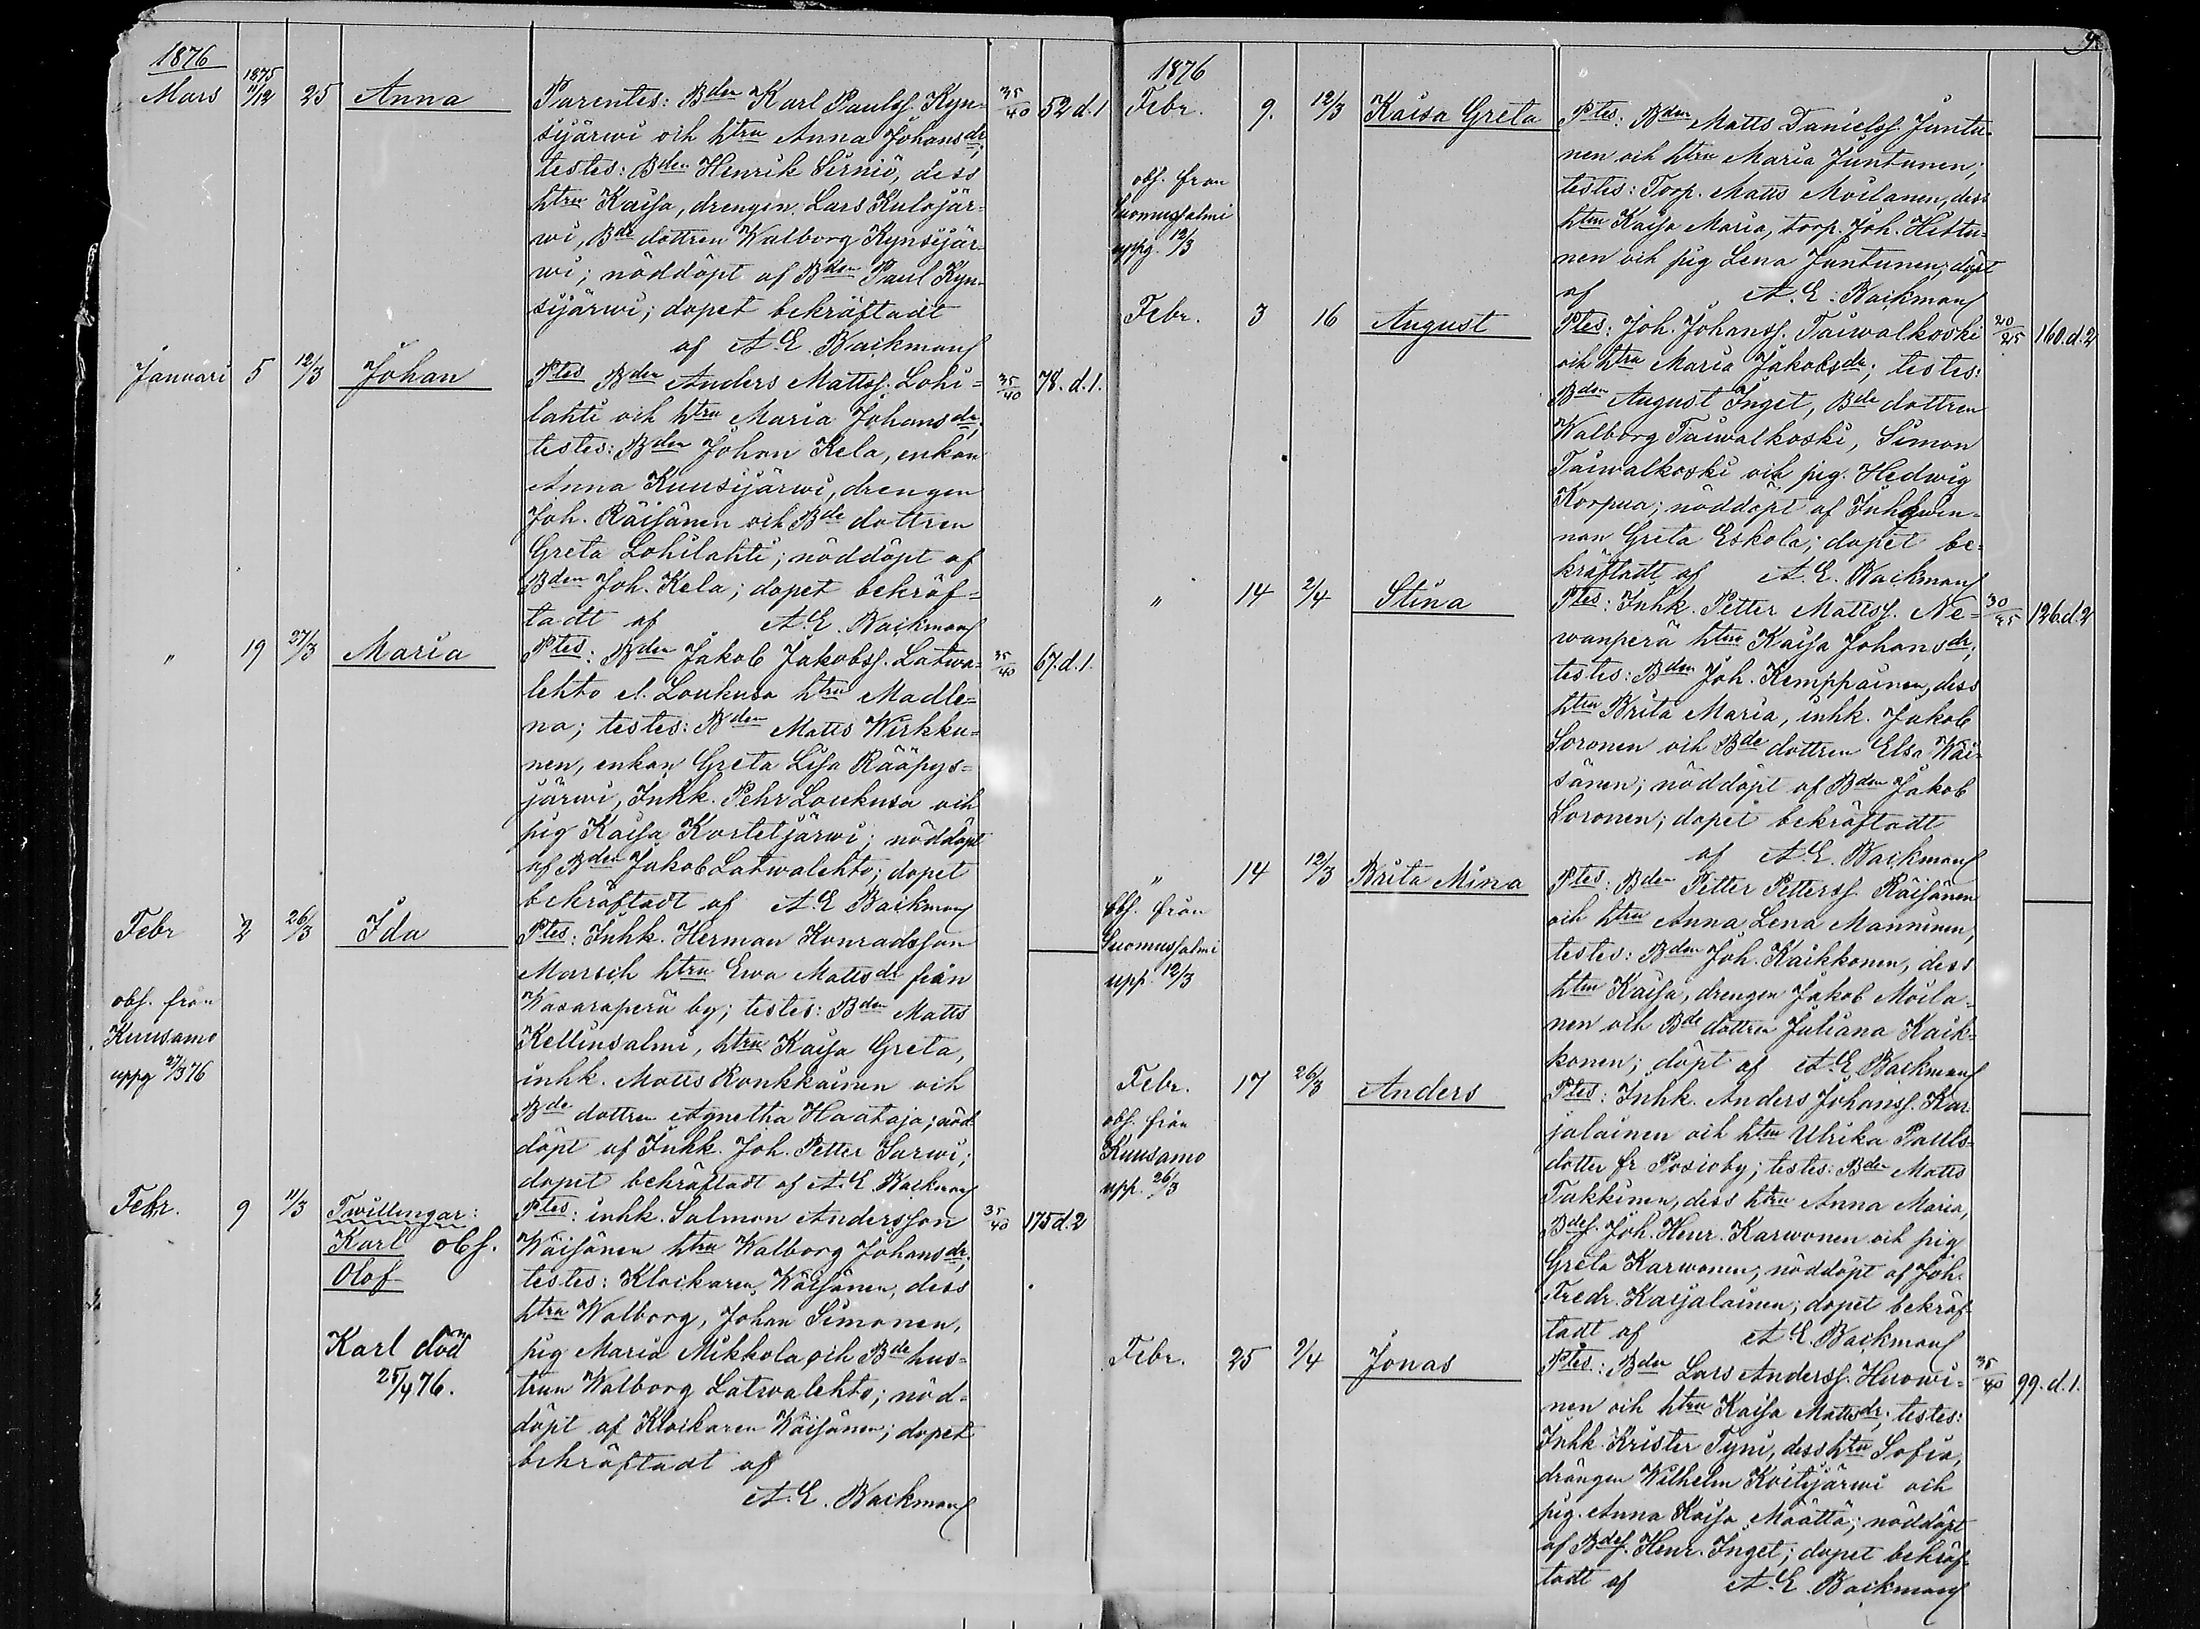 1876
Mars 1875 11/12 25 Anna Parentes: Bden Karl Paulss. Kyn- 35/40 52 d. 1
sijärwi och htru Anna Johansdr;
testes: Bden Henrik Sirniö, dess
htru Kaisa, drengen Lars Kulojär-
wi, Bde dottren Walborg Kynsijär-
wi; nöddöpt af Bden Paul Kyn-
sijärwi; dopet bekräftadt
af A. E. Backman
Januari 5 12/3 Johan Ptes Bden Anders Mattss. Lohi- 35/40 78. d. 1.
lahti och htru Maria Johansdr;
testes: Bden Johan Kela, enkan
Anna Kuusijärwi, drengen
Joh. Räisänen och Bde dottren
Greta Lohilahti; nöddöpt af
Bden Joh. Kela; dopet bekräf-
tadt af A. E. Backman
" 19 27/3 Maria Ptes: Bden Jakob Jakobss. Latwa- 35/40 67. d. 1.
lehto el. Loukusa htru Madle-
na; testes: Bden Matts Wirkku-
nen, enkan Greta Lisa Rääpys-
järwi, Inhk. Pehr Loukusa och
pig Kaisa Kortetjärwi; nöddöpt
af Bden Jakob Latwalehto; dopet
bekräftadt af A. E. Backman
Febr 2 26/3 Ida Ptes: Inhk. Herman Konradsson
Marsch htru Ewa Mattsdr från
Wasaraperä by; testes: Bden Matts
obs. från
Kuusamo
uppg 27/3 76
Kellinsalmi, htru Kaisa Greta,
inhk. Matts Ronkkainen och
Bde dottren Agnetha Haataja; nöd-
döpt af Inhk. Joh. Petter Sarwi;
dopet bekräftadt af A. E. Backman
Febr. 9 11/3 Twillingar: Ptes: inhk. Salmon Andersson 35/40 175 d. 2
Karl obs. Wäisänen htru Walborg Johansdr;
Olof testes: Klockaren Wäisänen, dess
htru Walborg, Johan Simonen,
Karl död pig Maria Mikkola och Bde hus-
25/4 76. trun Walborg Latwalehto; nöd-
döpt af Klockaren Wäisänen; dopet
bekräftadt af
A. E. Backman
9.
1876
Febr. 9. 12/3 Kaisa Greta Ptes: Bden Matts Danielss. Juntu-
nen och htru Maria Juntunen;
obs. från
Suomussalmi
uppg. 12/3
testes: Torp. Matts Moilanen, dess
htru Kaisa Maria, torp. Joh. Hettu-
nen och pig Lena Juntunen; döpt
af A. E. Backman
Febr. 3 16 August Ptes: Joh. Johanss. Taiwalkoski 20/25 160. d. 2
och htru Maria Jakobsdr; testes:
Bden August Inget, Bde dottren
Walborg Taiwalkoski, Simon
Taiwalkoski och pig. Hedwig
Korpua; nöddöpt af Inhqwin-
nan Greta Eskola; dopet be-
kräftadt af A. E. Backman
" 14 2/4 Stina Ptes: Inhk. Petter Mattss. Ne- 30/35 126. d. 2
wanperä htru Kaisa Johansdr;
testes: Bden Joh. Kemppainen, dess
htru Brita Maria, inhk. Jakob
Soronen och Bde dottren Elsa Wäi-
sänen; nöddöpt af Bden Jakob
Soronen; dopet bekräftadt
af A. E. Backman
" 14 12/3 Brita Mina Ptes: Bden Petter Petterss. Räisänen
och htru Anna Lena Manninen;
obs. från
Suomussalmi
upp. 12/3
testes: Bden Joh. Kaikkonen, dess
htru Kaisa, drengen Jakob Moila-
nen och Bde dottren Juliana Kaik-
konen; döpt af A. E. Backman
Febr. 17 26/3 Anders Ptes: Inhk. Anders Johanss. Kar-
jalainen och htru Ulrika Pauls-
obs. från
Kuusamo
upp. 26/3
dotter fr Posioby; testes: Bden Matts
Takkinen, dess htru Anna Maria,
Bdes. Joh. Henr. Karwonen och pig
Greta Karwonen; nöddöpt af Joh.
Fredr. Karjalainen; dopet bekräf-
tadt af A. E. Backman
Febr. 25 2/4 Jonas Ptes: Bden Lars Anderss. Huowi- 35/40 99. d. 1.
nen och htru Kaisa Mattsdr; testes:
Inhk. Krister Tyni, dess htru Sofia,
drängen Wilhelm Koitijärwi och
pig. Anna Kaisa Määttä; nöddöpt
af Bdes. Henr. Inget; dopet bekräf-
tadt af A. E. Backman